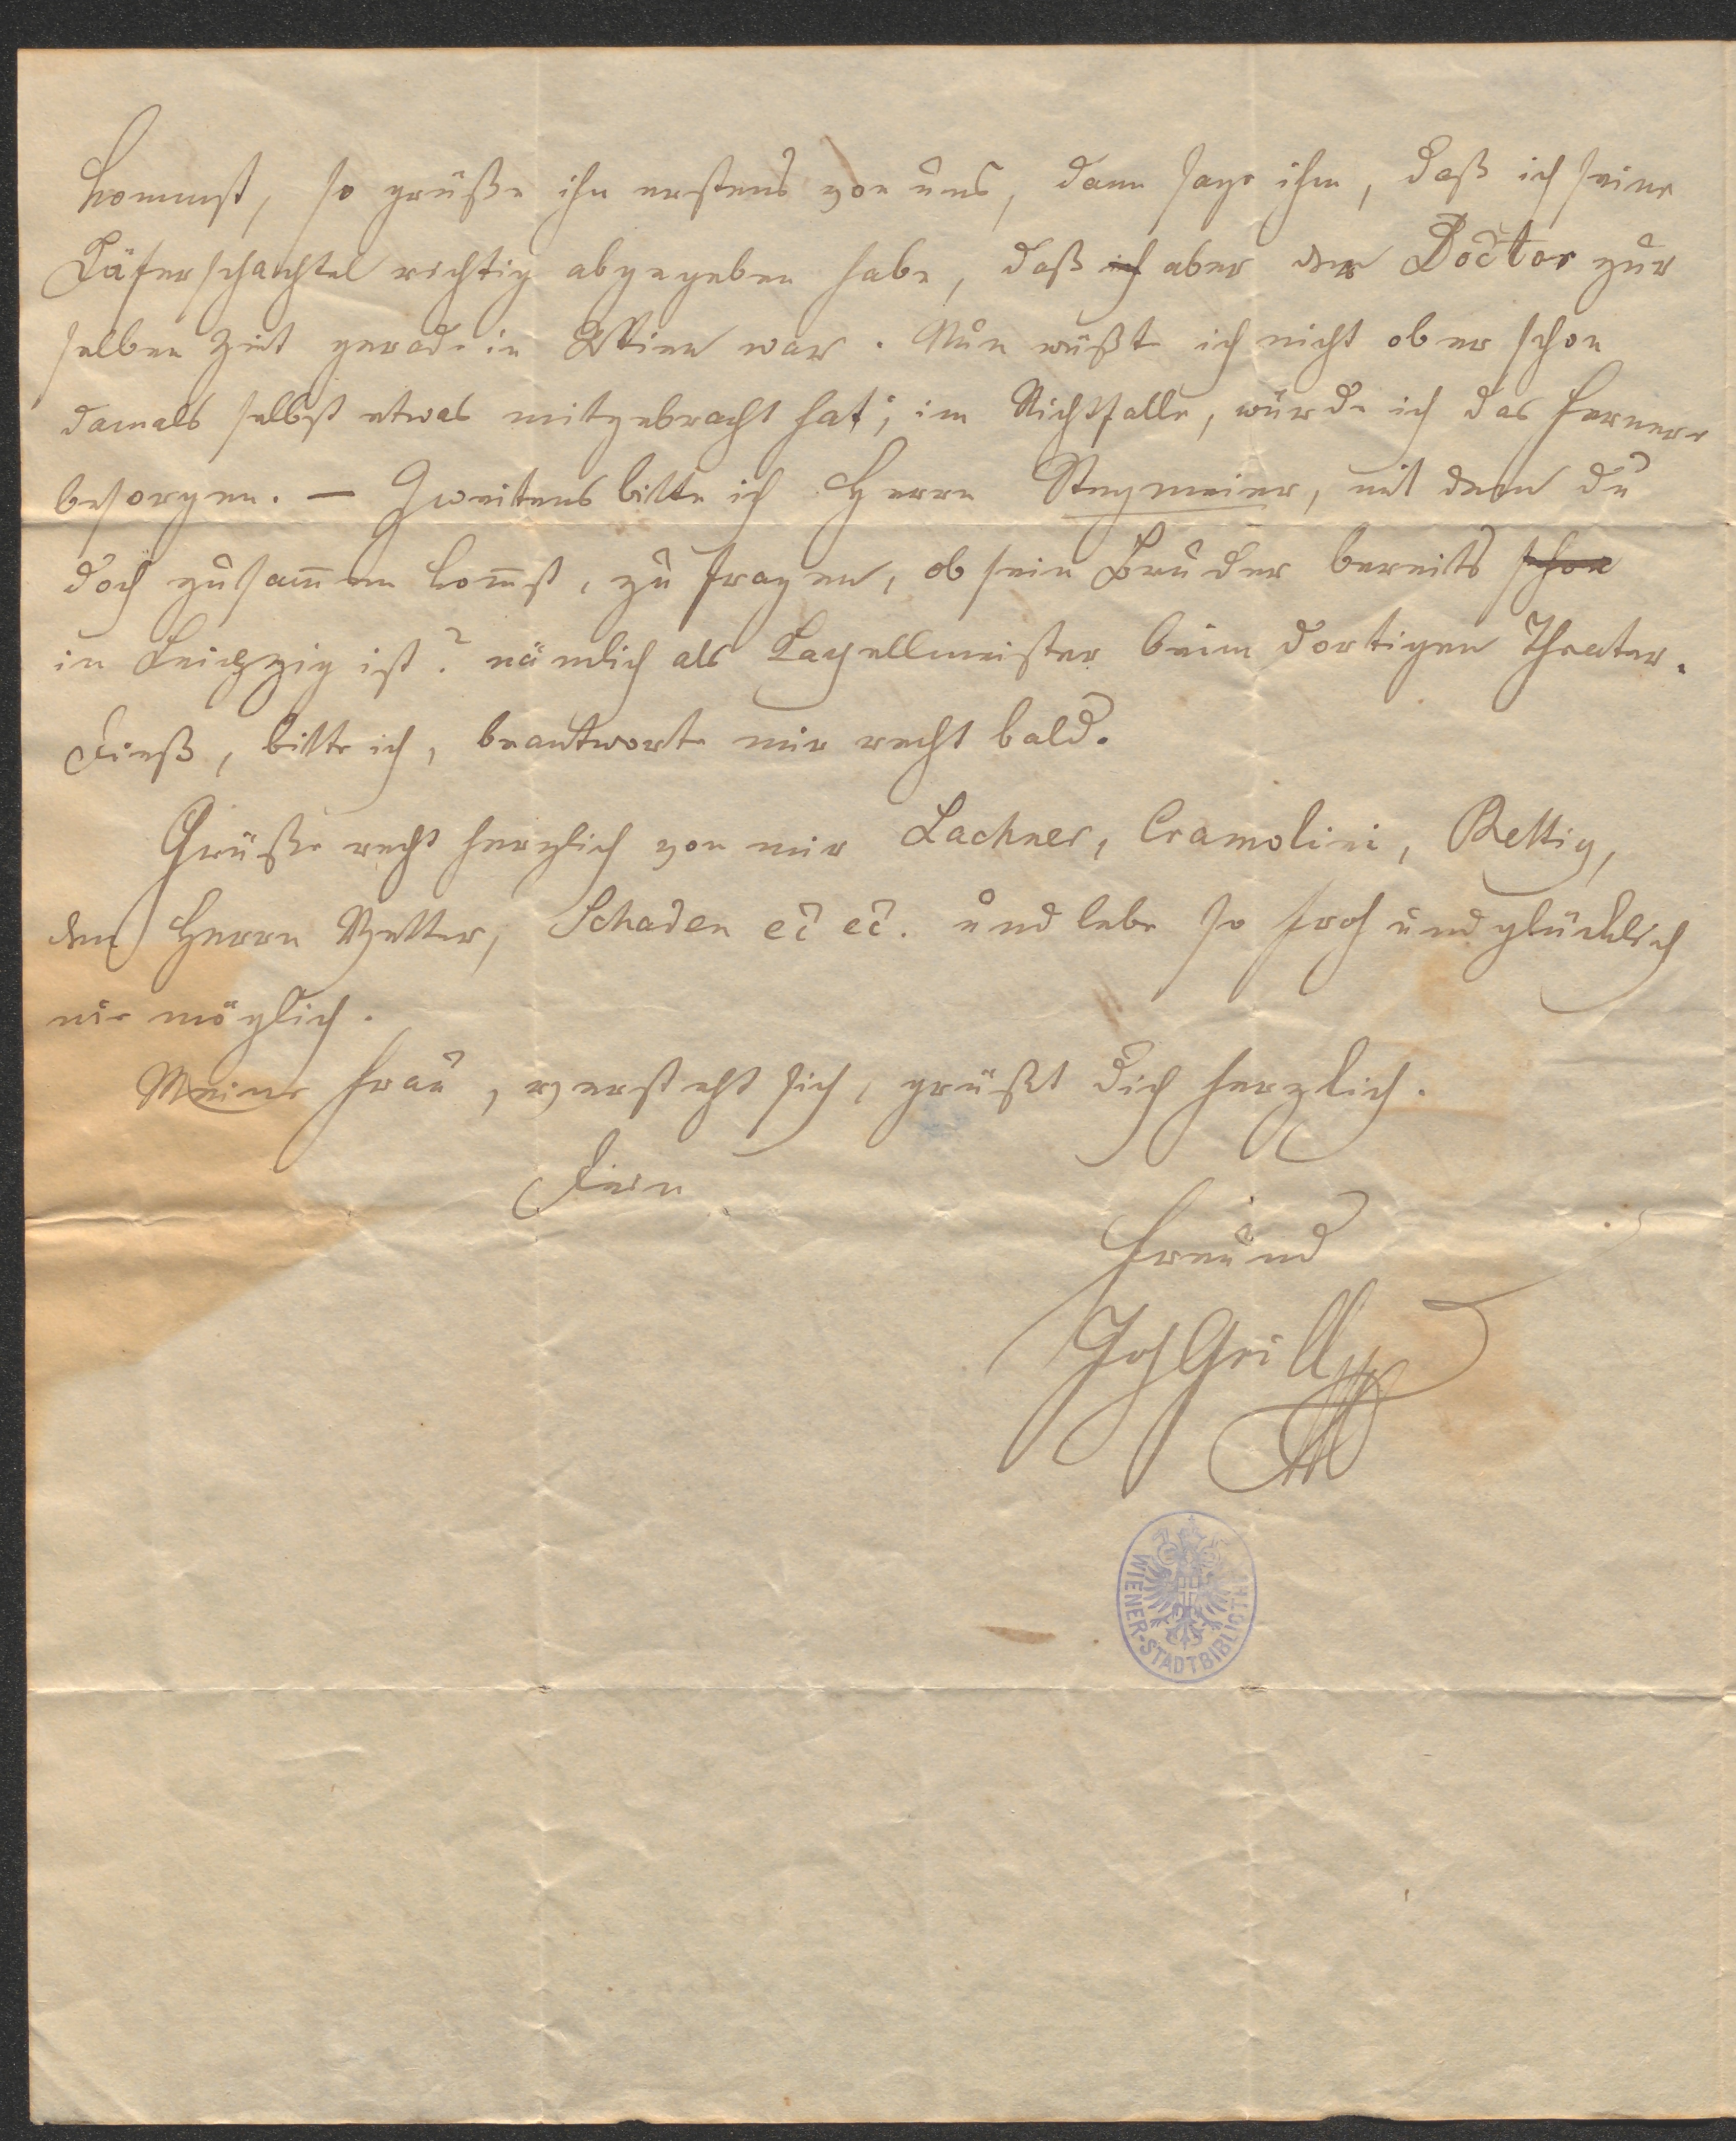 kommst, so grüße ihn erstens von uns, dann sage ihm, daß ich seine
Käferschachtel richtig abgegeben habe, daß ich aber der Doctor zur
selben Zeit gerade in Wien war. Nun wußt ich nicht ob er schon
damals selbst etwas mitgebracht hat; im Nichtfalle, würde ich das Fernere
besorgen. — Zweitens bitte ich Herrn Stegmeier, mit dem du
doch zusam̅en kom̅st, zu fragen, ob sein Bruder bereits schon
in Leipzig ist? nämlich als Kapellmeister beim dortigen Theater.
Dieß, bitte ich, beantworte mir recht bald.
Grüße recht herzlich von mir Lachner, Cramolini, Rettig,
den Herrn Vetter, Schaden ec ec. und lebe so froh und glücklich
wie möglich.
Meine Frau, versteht sich, grüßt dich herzlich.
Dein
Freund
Jos Grill
WIENER-STADTBIBLIOTH